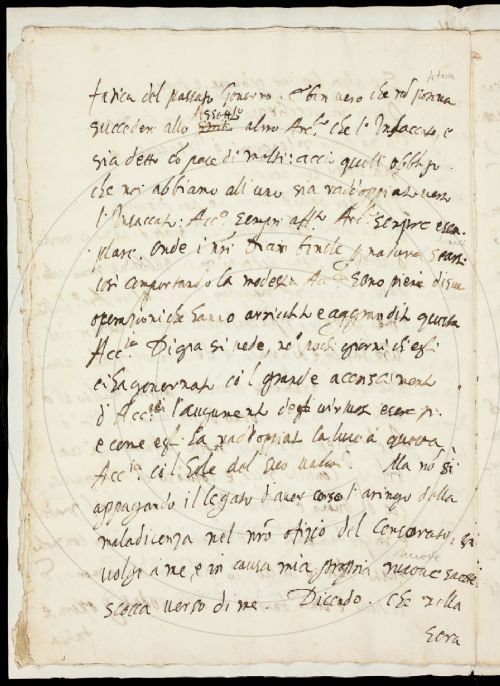 fatica del passato Governo. È ben vero che nō poteva
succedere allo Assottilo altro Arc.º che l'Insaccato, e
sia detto cō pace di molti: acciò quell'obbligo
che noi abbiamo all'uno sia raddoppiato verso
l'Insaccato. Acc.º sempre Arc.º sempre esem-
plare. Onde i nri
così comportando la modestia sono piene di sue
operazioni che hanno arricchito e aggrandito questa
Acc.ia Di già si vede, ne' pochi giorni ch'egli
ci ha governato cō l grande accrescimento
d'Acc.ci l'aumento degli virtuosi esercizi
e come egli ha raddoppiata la luce a questa
Acc.ia cō l Sole del suo valore. Ma nō si
appagando il Legato d'aver corso l'aringo della
maladicenza nel nrō ofizio del Censorato, si
volge a me, e in causa mia propria nuove saette
scocca verso di me. Dicendo. che nella
sera